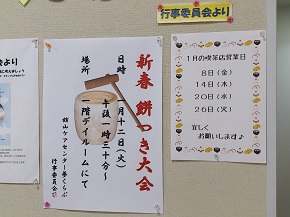 行事委員会より
新春 餅つき大会
日時 一月十二日(火)
午後一時三十分～
場所 一階デイルームにて
館山ケアセンター夢くらぶ
行事委員会
1月の喫茶店営業日
8日(金)
14日(木)
20日(水)
26日(火)
宜しく
お願いします♪
会より